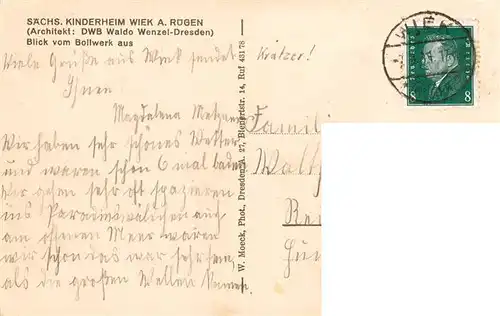 SÄCHS. KINDERHEIM WIEK A. RÜGEN
(Architekt: DWB Waldo Wenzel-Dresden)
Blick vom Bollwerk aus
Viele Grüße aus Wiek sendet
Ihnen
Magdalena
Wir haben sehr schönes Wetter
und waren schon 6 mal baden
Wir gehen sehr oft spazieren
ins auch
am offenen Meer waren
wir schon das war sehr fein,
als die großen Wellen kamen.
W. Moeck, Phot., Dresden-A. 27, Bienertstr. 14, Ruf 43176
Kratzer!
WIEK
8 8
Famil
Walt
Re